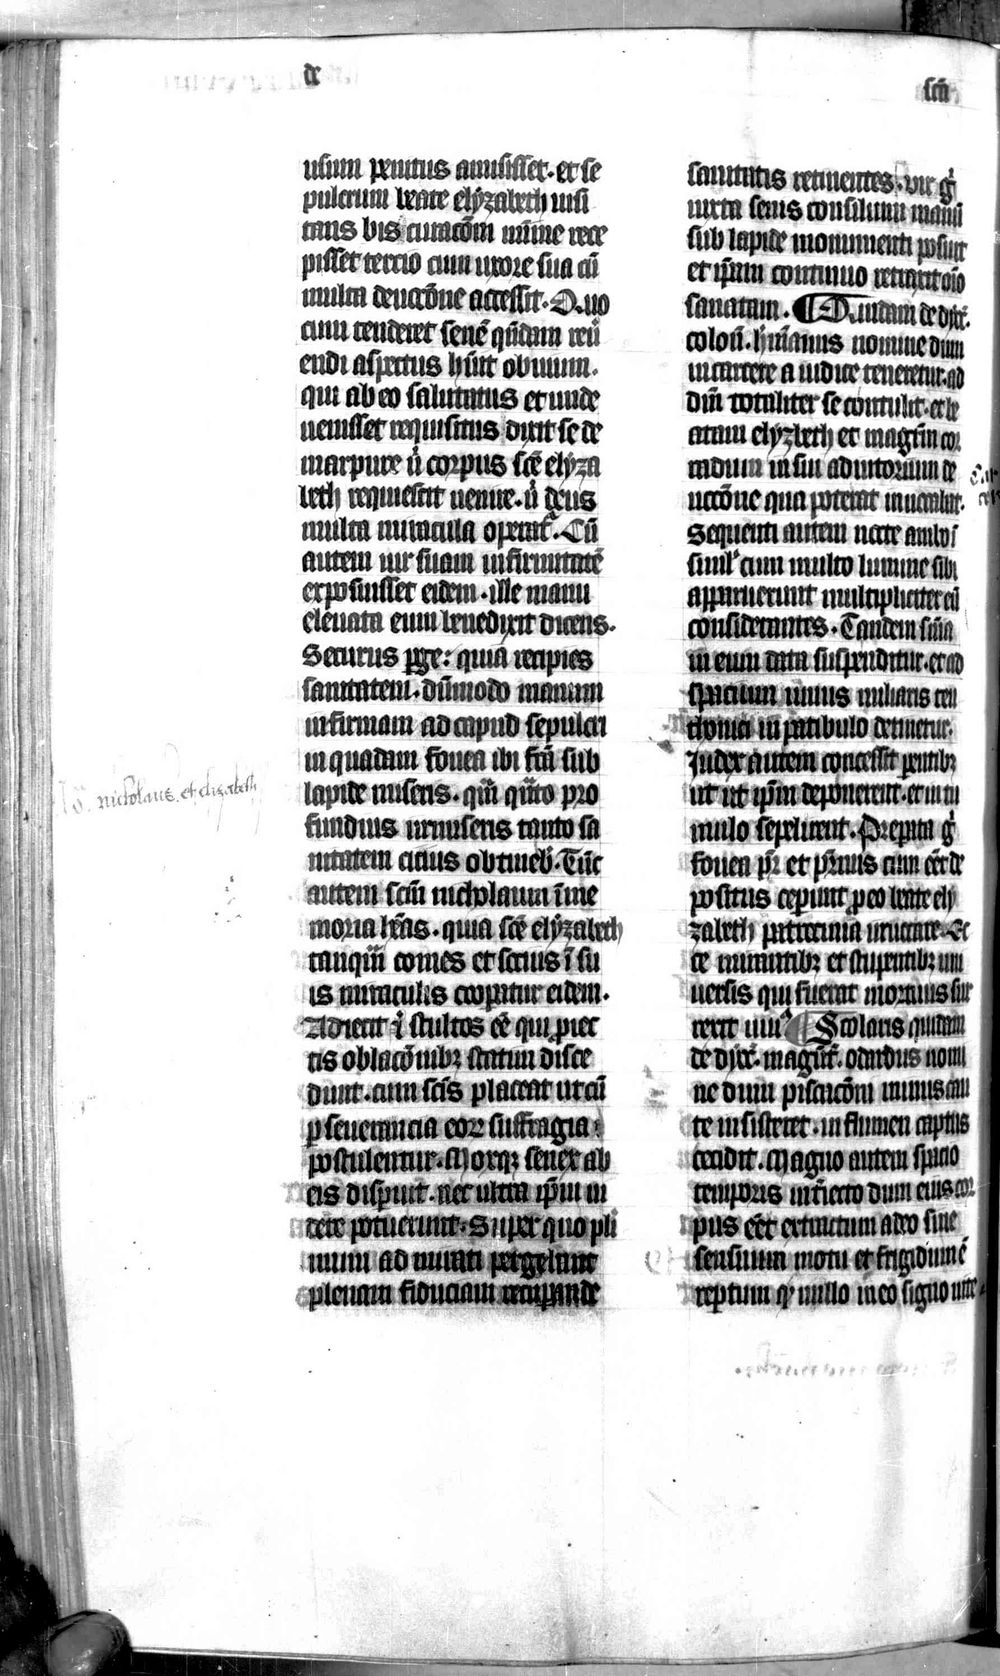 de
scā
usum penitus amisisset. et se
pulcrum beate elyzabeth uisi
tans bis curacōm minime rece
pisset tercio cum uxore sua cū
multa deuocōne accessit. Quo
cum tenderet senē qūdam reū
endi aspectus hūit obuium.
qui ab eo salutatus et unde
uenisset requisitus dixit se de
marpurc ū corpus scē elyza
beth requiescit uenire. ū deus
multa miracula operat᷒. Cū
autem uir suam infirmitatē
exposuisset eidem. ille manu
eleuata eum benedixit dicens.
Securus ꝑge: quia recipies
sanitatem. dūmodo manum
infirmam ad capud sepulcri
in quadam fouea ibi fcā sub
lapide miseris. qm̄ q̄nto pro
fundius inmiseris tanto sa
nitatem citius obtineb᷒. Tūc
autem scm̄ nicholaum ī me
moria hēas. quia scē elyzabeth
tanquā comes et socius ī su
is miraculis coopatur eidem.
Adiecit ꝙ stultos eē qui ꝓiec
tis oblacōnibꝫ statim disce
dunt. cum scīs placeat ut cū
ꝑseuerancia eoꝝ suffragia
postulentur. Moxqꝫ senex ab
eis disparuit. nec ultra ip̄m ui
dere potuerunt. Super quo pli
mum admirati pergebant
plenam fiduciam recupande
Iō. nickolaus et elizabeth
sanitatis retinentes. vir ḡ
iuxta senis consilium manū
sub lapide monumenti posuit
et ip̄am continuo retraxit oīo
sanatam. Quidam de dyoc᷒.
colon̄. hm̄anus nomine dum
in carcere a iudice teneretur. ad
dm̄ totaliter se contulit. et be
atam elyzbeth et magr̄m cor
radum in sui adiutorium de
uocōne qua poterat inuocabat.
Sequenti autem nocte ambo ī
simul cum multo lumine sibi
apparuerunt multipliciter eū
consolantes. Tandem snīa
in eum data suspenditur. et ad
spacium unius miliaris teu
thonici in patibulo detinetur.
Iudex autem concessit parentibꝫ
ut ip̄m deponerent. et in tu
mulo sepelirent. Preparata ḡ
fouea pr̄ et pr̄uus cum eēt de
positus ceperunt ꝓ eo beate ely
zabeth patrocinia inuocare. Ec
ce mirantibꝫ et stupentibꝫ uni
uersis qui fuerat mortuus sur
rexit uiu᷒. Scolaris quidam
de dyoc᷒. magūt᷒. odardus nomi
ne dum piscacōni minus cau
te insisteret. in flumen captus
cecidit. Magno autem spacio
temporis int̄iecto dum eius cor
pus eēt extractum adeo sine
sensuum motu et frigidum ē
reptum ꝙ nullo in eo signo uite